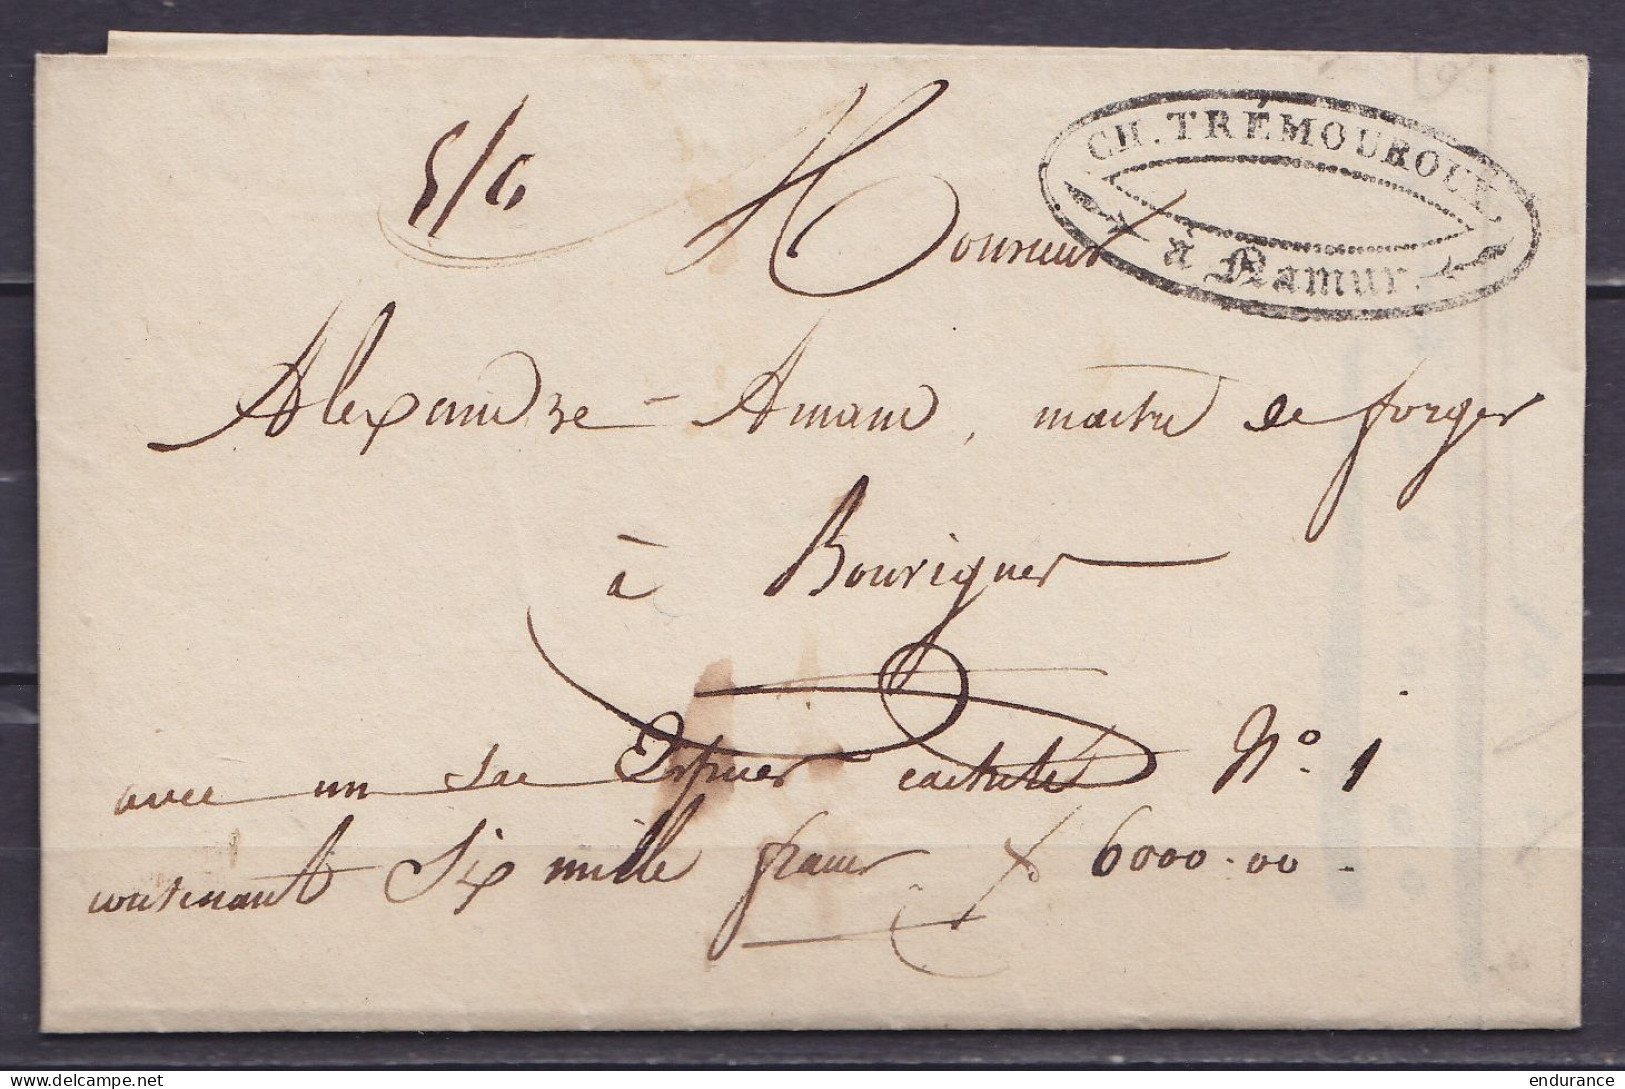 CH. TRÉMOUROUX,
à Namur.
5/6
Monsieur
Alexandre-Amand, maitre de forges
à Bouvignes
avec un sac d'espèces cacheté N° 1
contenant Six mille francs. f 6000.00.
endurance
delcampe.net